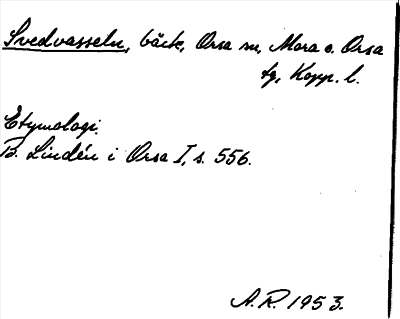 Svedvasseln, bäck, Orsa sn, Mora o. Orsa
tg, Kopp. l.
Etymologi.
B. Lindén i Orsa I, s. 556.
A.R. 1953.